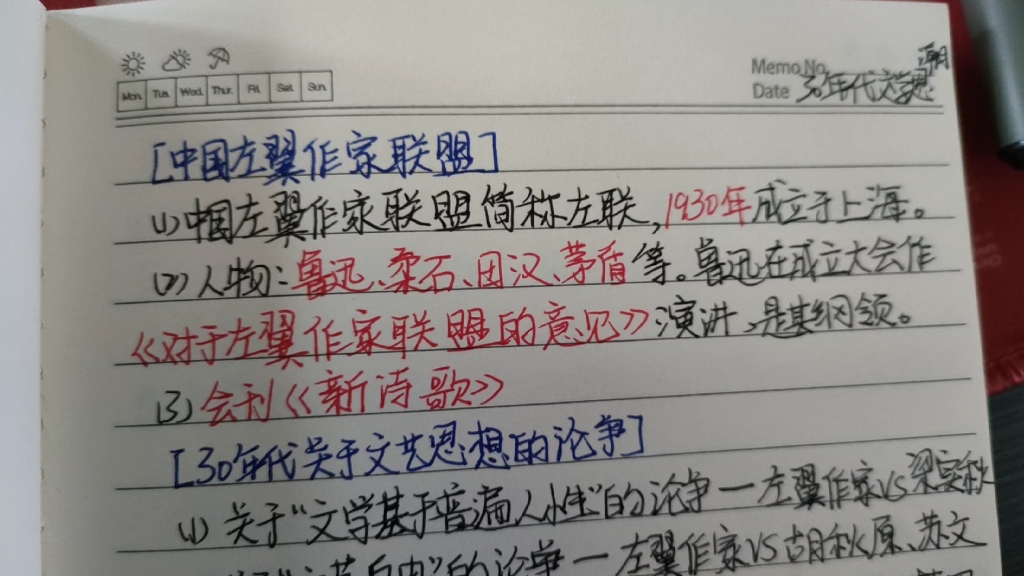 Memo No.
Mon. Tue. Wed. Thur. Fri. Sat. Sun.
Date 30年代文艺思潮
[中国左翼作家联盟]
(1) 中国左翼作家联盟简称左联,1930年成立于上海。
(2) 人物:鲁迅、柔石、田汉、茅盾等。鲁迅在成立大会作
《对于左翼作家联盟的意见》演讲,是其纲领。
(3) 会刊《新诗歌》
[30年代关于文艺思想的论争]
(1) 关于“文学基于普遍人性”的论争—左翼作家VS梁实秋
”的论争—左翼作家VS胡秋原、苏文